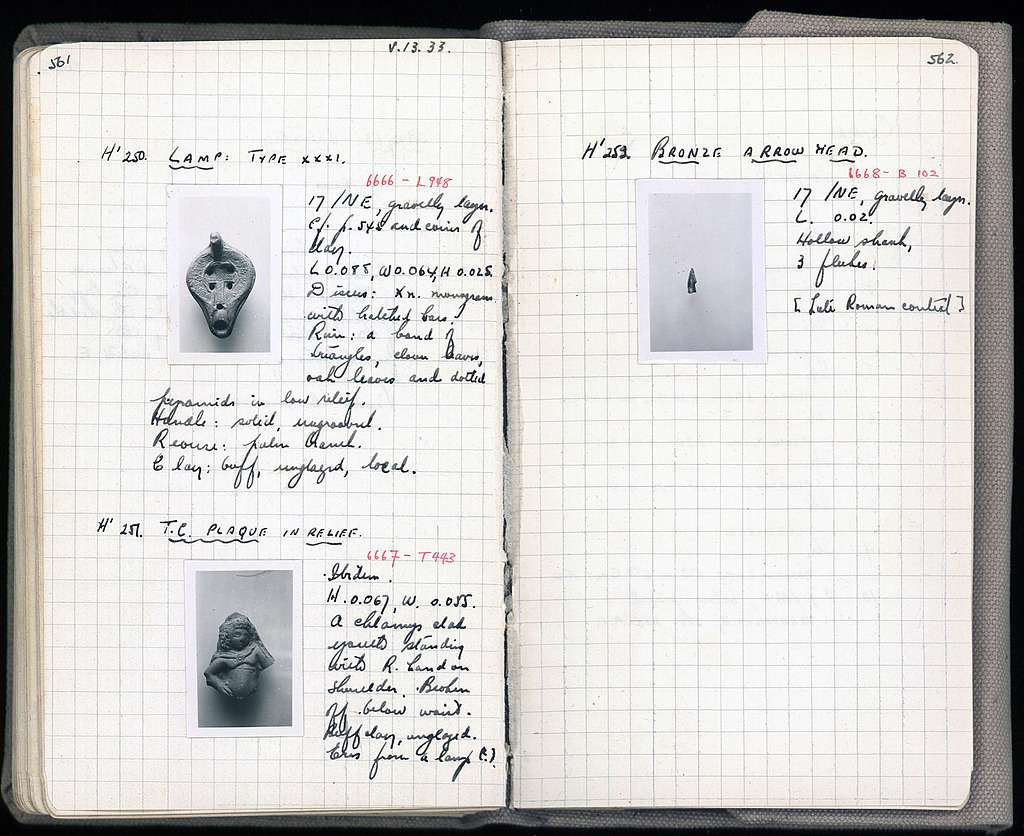 561
V.13.33.
H' 250. LAMP: TYPE XXXI.
6666 - L948
17/NE, gravelly layer.
Cf. p. 545 and coins of
day.
L 0.088, W 0.064, H 0.025.
Discus: Xn. monogram
with hatched bars.
Rim: a band of
triangles, clover leaves,
oak leaves and dotted
pyramids in low relief.
Handle: solid, ungrooved.
Reverse: palm branch.
Clay: buff, unglazed, local.
H' 251. T.C. PLAQUE IN RELIEF.
6667 - T443
Ibidem.
H. 0.067, W. 0.055.
A chlamys clad
youth standing
with R. hand on
shoulder. Broken
off below waist.
Buff clay, unglazed.
from a lamp (?)
562.
H' 252. BRONZE ARROW HEAD.
6668 - B 102
17/NE, gravelly layer.
L. 0.02.
Hollow shank,
3 flukes.
[Late Roman context]